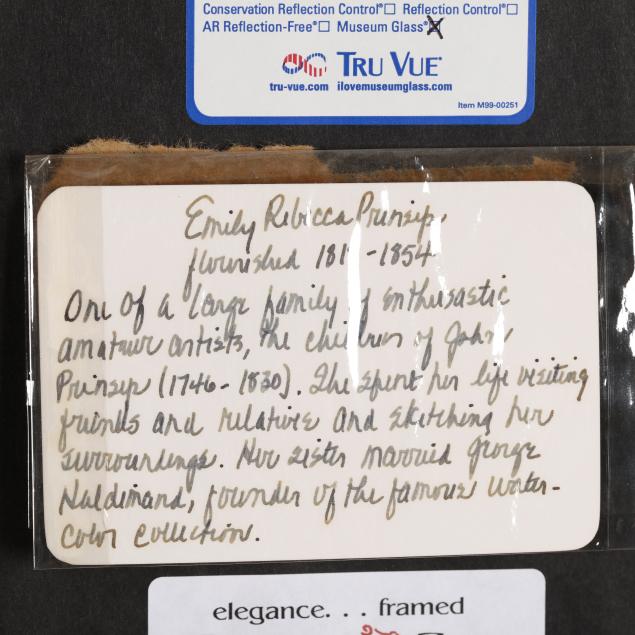 Conservation Reflection Control® □ Reflection Control® □
AR Reflection-Free® □ Museum Glass® ☒
TRU VUE®
tru-vue.com ilovemuseumglass.com
Item M99-00251
Emily Rebecca Prinsep,
flourished 181 -1854
One of a large family of enthusastic
amateur artists, the children of John
Prinsep (1746-1830). She spent her life visiting
friends and relatives and sketching her
surroundings. Her sister married George
Haldimand, founder of the famous water-
color collection.
elegance. . . framed